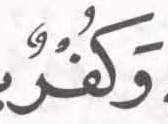 وَكُفْرٌ